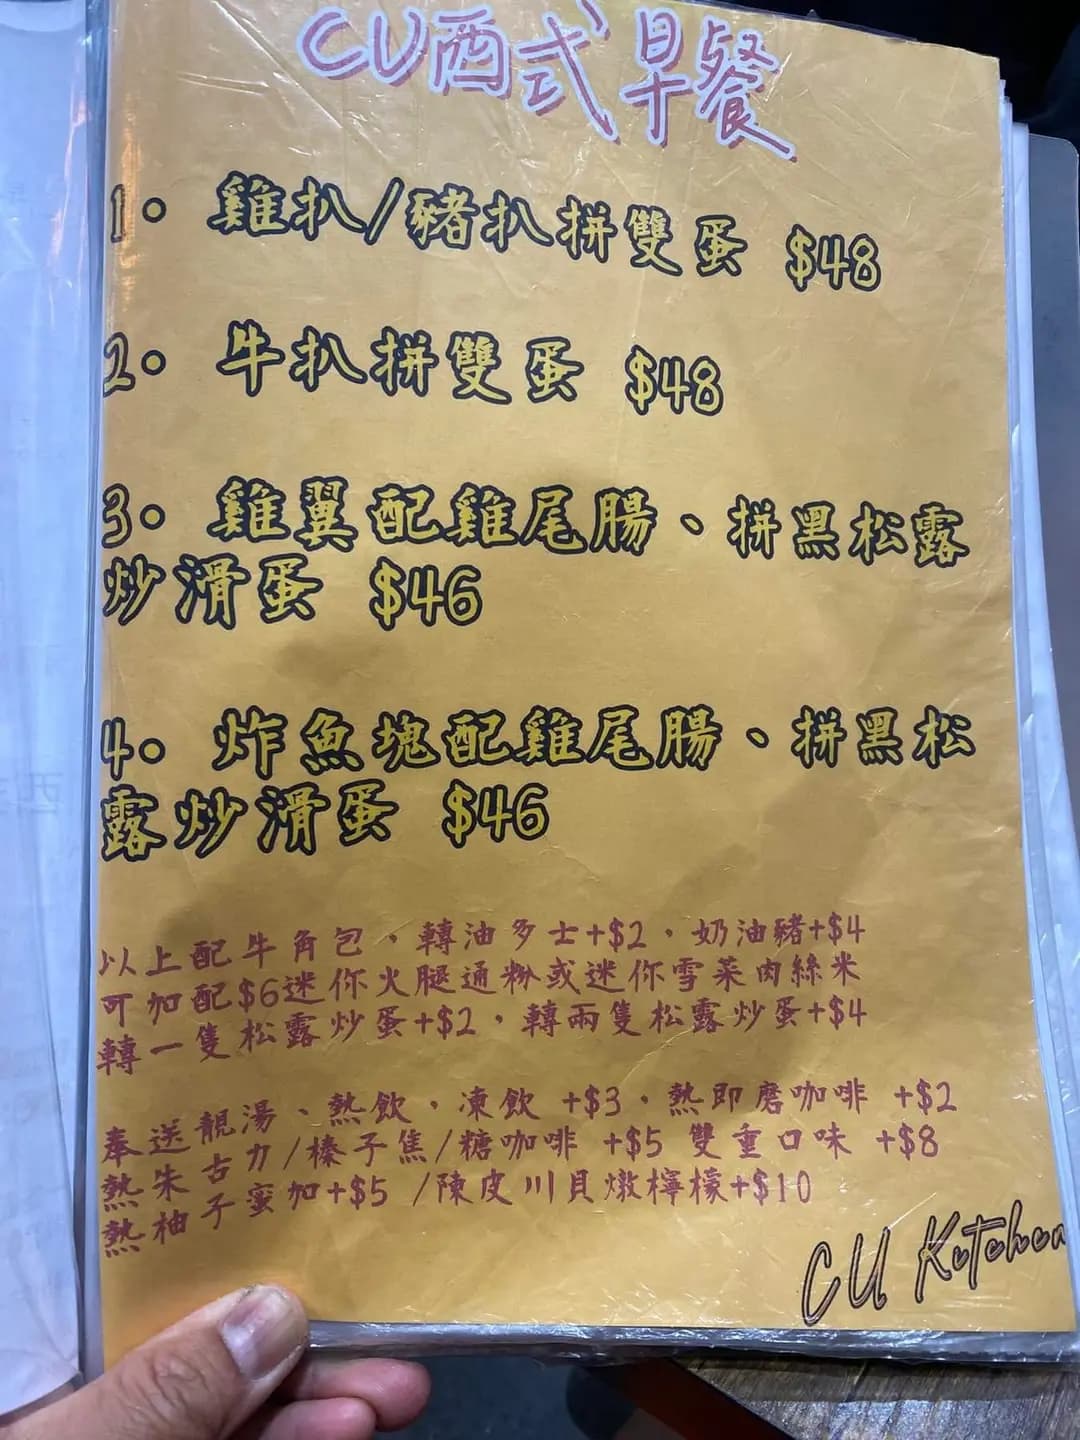 CU西式早餐
1. 雞扒/豬扒拼雙蛋 $48
2. 牛扒拼雙蛋 $48
3. 雞翼配雞尾腸、拼黑松露
炒滑蛋 $46
4. 炸魚塊配雞尾腸、拼黑松
露炒滑蛋 $46
以上配牛角包，轉油多士+$2，奶油豬+$4
可加配$6迷你火腿通粉或迷你雪菜肉絲米
轉一隻松露炒蛋+$2，轉兩隻松露炒蛋+$4
奉送靚湯、熱飲，凍飲 +$3，熱即磨咖啡 +$2
熱朱古力/榛子焦/糖咖啡 +$5 雙重口味 +$8
熱柚子蜜加+$5 /陳皮川貝燉檸檬+$10
CU Kitchen